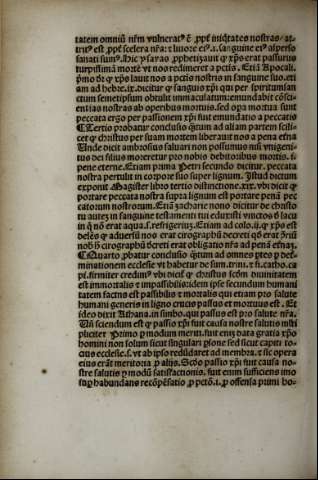 tatem omniũ nr̃m vulnerat⁹ ē ,ppt̃ iniq̃tates nostras/ at-
trit⁹ est ,ppt̃ scelera nr̃a: ⁊ liuore ei⁹.i. sanguine ei⁹ asperso
sanati sum⁹. Hic ysayas ,pphetizauit ꝙ xp̃s erat passurus
turpissimã mortẽ vt nos redimeret a pctis. Etiã Apocali.
pͥmo dr̃ ꝙ xp̃s lauit nos a pctis nostris in sanguine suo. eti
am ad hebre. ix. dicitur ꝙ sanguis xp̃i qui per spiritumsan
ctum semetipsum obtulit immaculatum: emundabit cõsci
entias nostras ab operibus mortuis. sed opa mortua sunt
peccata ergo per passionem xp̃i fuit emundatio a peccatis
¶ Tertio probatur conclusio q̃tum ad aliam partem scili
cet ꝙ christus per suam mortem liberauit nos a pena etñа
Unde dicit ambrosius saluari non possumus nisi vnigeni
tus dei filius moreretur pro nobis debitoribus mortis. i.
pene eterne. Etiam prima Petri secundo dicitur. peccata
nostra pertulit in corpore suo super lignum. Istud dictum
exponit Magister libro tertio distinctione .xix. vbi dicit ꝙ
portare peccata nostra supra lignum est portare penã pec
catorum nostrorum. Etiã zacharie nono dicitur de christo
tu autez in sanguine testamenti tui eduxisti vinctos ð lacu
in q̃ nõ erat aqua .s. refrigerijz. Etiam ad colo. ij. ꝙ xp̃s est
delẽs ꝙ aduersũ nos erat cirographũ decreti qð erat ↄ̃riũ
nob̃ h̃ cirographũ ðcreti erat obligatio nr̃a ad penã etñaz.
¶ Quarto ,pbatur conclusio q̃tum ad omnes ptes ꝑ de-
minationem ecclesie vt habetur de sum. trini. ⁊ fi. catho. ca
pi. firmiter credim⁹ vbi dicit ꝙ christus scðm diuinitatem
est immortalis ⁊ impassibilis: idem ipse secundum humani
tatem factus est passibilis ⁊ mortalis qui etiam pro salute
humani generis in ligno crucis passus et mortuus est. Et
ideo dixit Athana. in simbo. qui passus est pro salute nr̃a.
Uñ sciendum est ꝙ passio xp̃i fuit causa nostre salutis m̃lti
pliciter Primo ꝑ modum meriti. fuit enĩ data gratia xp̃o
homini non solum sicut singulari ꝑsone sed sicut capiti to-
cius ecclesie. s. vt ab ipso redũdaret ad membra. ⁊ sic opera
eius erãt meritoria ꝓ alijs. Scðo passio xp̃i fuit causa no-
stre salutis ꝑ modũ satisfactionis. fuit enim sufficiens imo
suꝑhabundans recõpẽsatio ꝓ pctõ .i. ꝓ offensa primi ho-